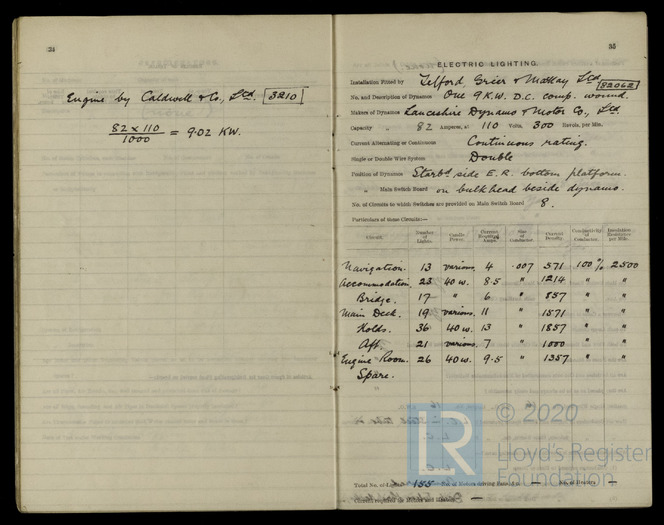 34
Engine by Caldwell & Co., Ltd. [3210]
82 x 110 / 1000 = 9.02 KW.
35
ELECTRIC LIGHTING.
Installation Fitted by Telford, Grier & Mackay Ltd.
No. and Description of Dynamos One 9 K.W. D.C. comp. wound. [82062]
Makers of Dynamos Lancashire Dynamo & Motor Co., Ltd.
Capacity „ 82 Amperes, at 110 Volts, 300 Revols. per Min.
Current Alternating or Continuous Continuous rating.
Single or Double Wire System Double
Position of Dynamos Starbd side E.R. bottom platform.
„ Main Switch Board on bulkhead beside dynamo.
No. of Circuits to which Switches are provided on Main Switch Board 8.
Particulars of these Circuits:—
Circuit. Number of Lights. Candle Power. Current Required Amps. Size of Conductor. Current Density. Conductivity of Conductor. Insulation Resistance per Mile.
Navigation. 13 various. 4 .007 571 100 % 2500
Accommodation. 23 40 w. 8.5 " 1214 " "
Bridge. 17 " 6 " 857 " "
Main Deck. 19 various. 11 " 1571 " "
Holds. 36 40 w. 13 " 1857 " "
Aft. 21 various. 7 " 1000 " "
Engine Room. 26 40 w. 9.5 " 1357 " "
Spare.
© 2020
LR
Lloyd's Register
Foundation
Total No. of Lights 155 No. of Motors driving Fans, &c. — No. of Heaters —
Current required for Motors and Heaters —